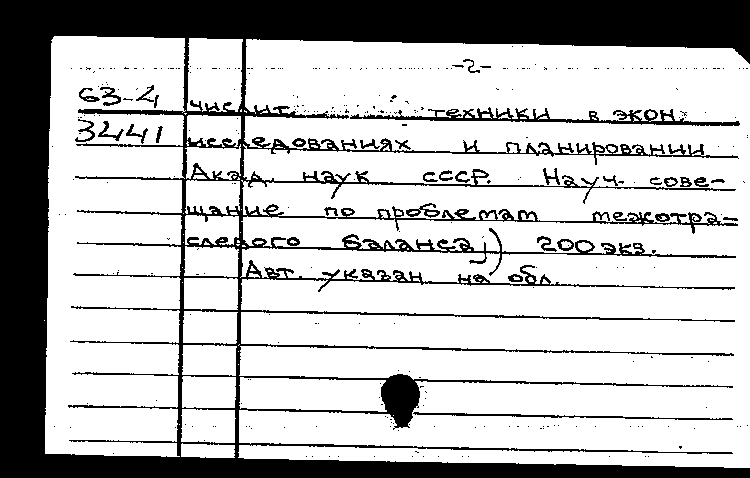 -2-
63-4 числит. техники в экон.
3441 исследованиях и планировании
Акад. наук СССР. Науч. сове-
щание по проблемам межотра-
слевого баланса;) 200 экз.
Авт. указан на обл.